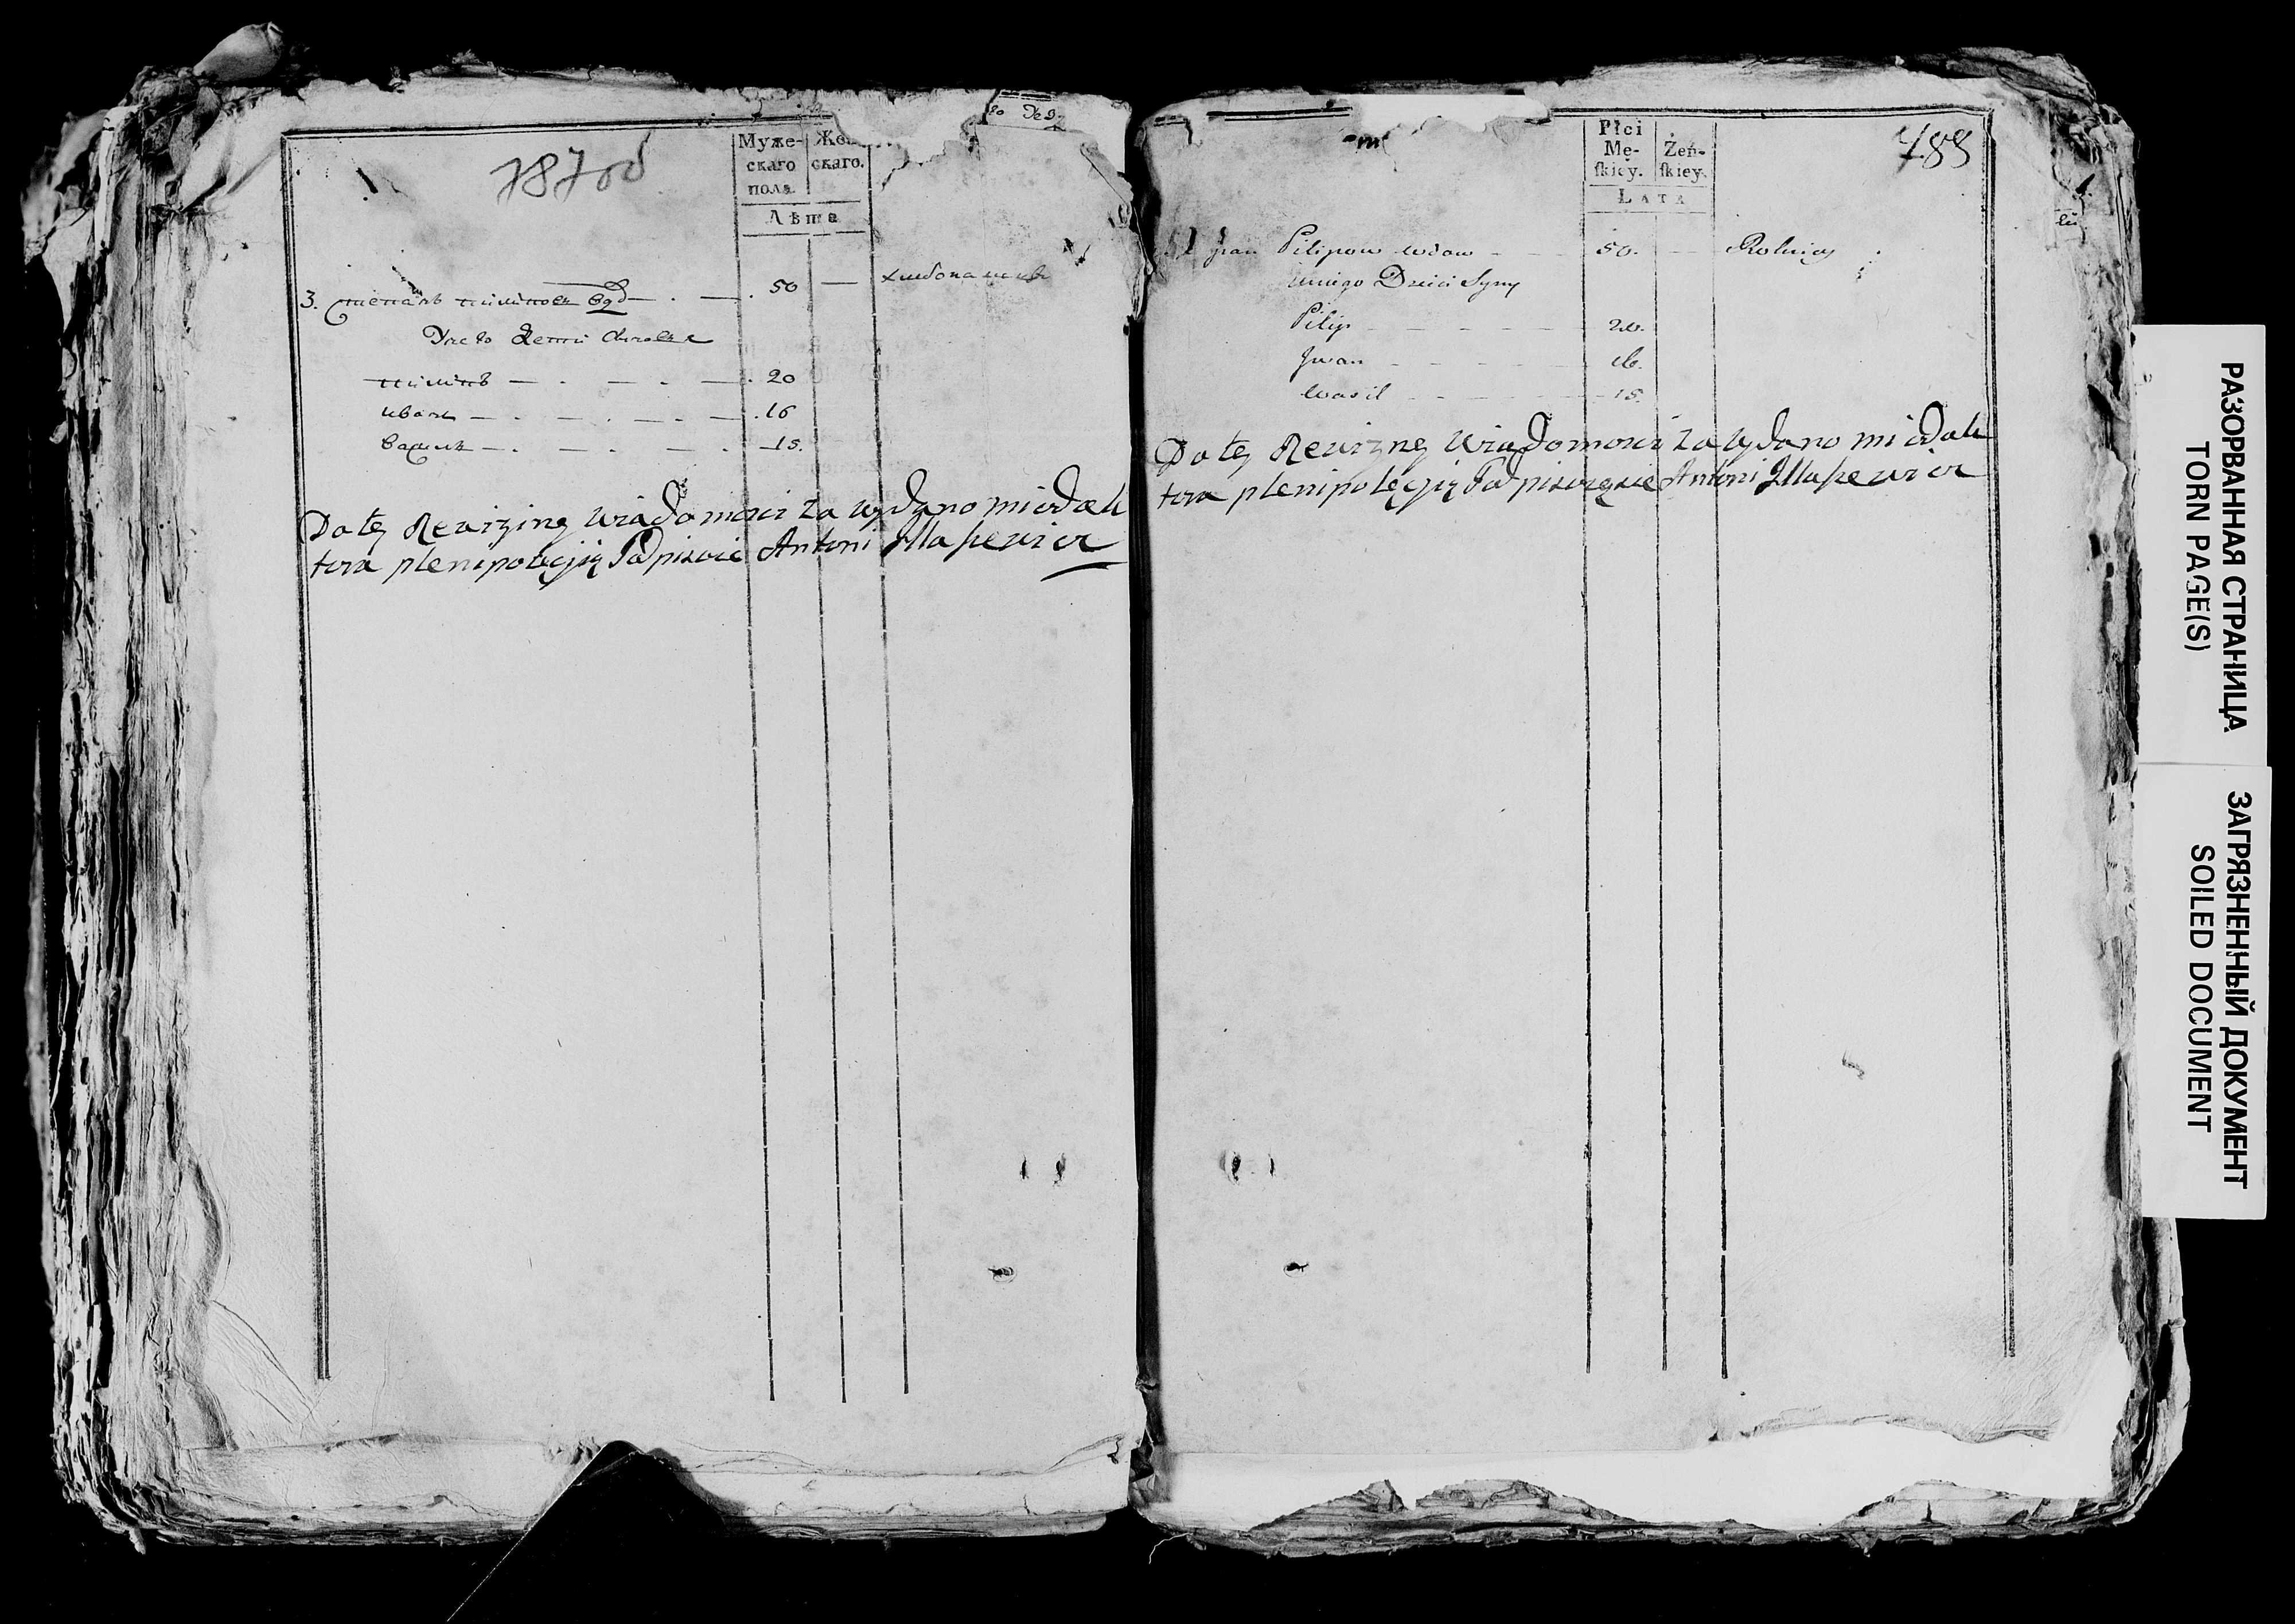 787 об
Муже-
скаго
пола.
Же
скаго.
Лѣта
3. Степанъ Пилиповъ вдо — 50 — хлѣбопашецъ
У него дети сыновья
Пилипъ — 20
Иванъ — 16
Василь — 15.
Do tey Rewizyine Wiadomosci za wydano mi od ak
tora plenipotęcyią Podpisuie Antoni
788
Płci
Mę-
ſkiey.
Żeń-
ſkiey.
Lata
Pilipow wdow — 50. — Rolnicy
u niego Dzieci Syny
Pilip — 20.
Jwan — 16.
Wasil — 15.
Do tey Rewizyne Wiadomosci za wydano mi od ak
tora plenipotęcyią Antoni
РАЗОРВАННАЯ СТРАНИЦА
TORN PAGE(S)
ЗАГРЯЗНЕННЫЙ ДОКУМЕНТ
SOILED DOCUMENT